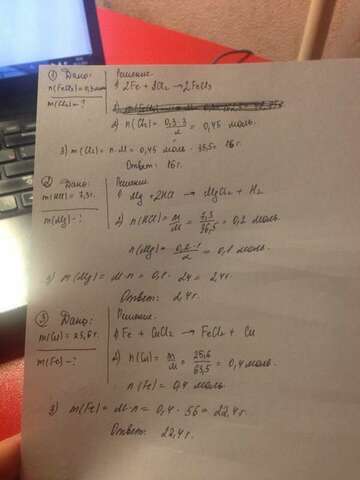 ① Дано:
n(FeCl₃)=0,3моль
m(Cl₂)-?
Решение
1) 2Fe + 3Cl₂ → 2FeCl₃
2) n(Cl₂)= 0,3·3/2 = 0,45 моль.
3) m(Cl₂)= n·M = 0,45 моль · 35,5= 16г.
Ответ: 16г.
② Дано:
m(HCl)= 7,3г.
m(Mg)-?
Решение.
1) Mg +2HCl → MgCl₂ + H₂
2) n(HCl)= m/M = 7,3/36,5 = 0,2 моль.
n(Mg)= 0,2·1/2 = 0,1 моль.
3) m(Mg)= M·n = 0,1· 24 = 2,4г.
Ответ: 2,4г.
③ Дано:
m(Cu)= 25,6г.
m(Fe)-?
Решение.
1) Fe + CuCl₂ → FeCl₂ + Cu
2) n(Cu)= m/M = 25,6/63,5 = 0,4 моль.
n(Fe)= 0,4 моль.
3) m(Fe)= M·n = 0,4 · 56 = 22,4г.
Ответ: 22,4г.